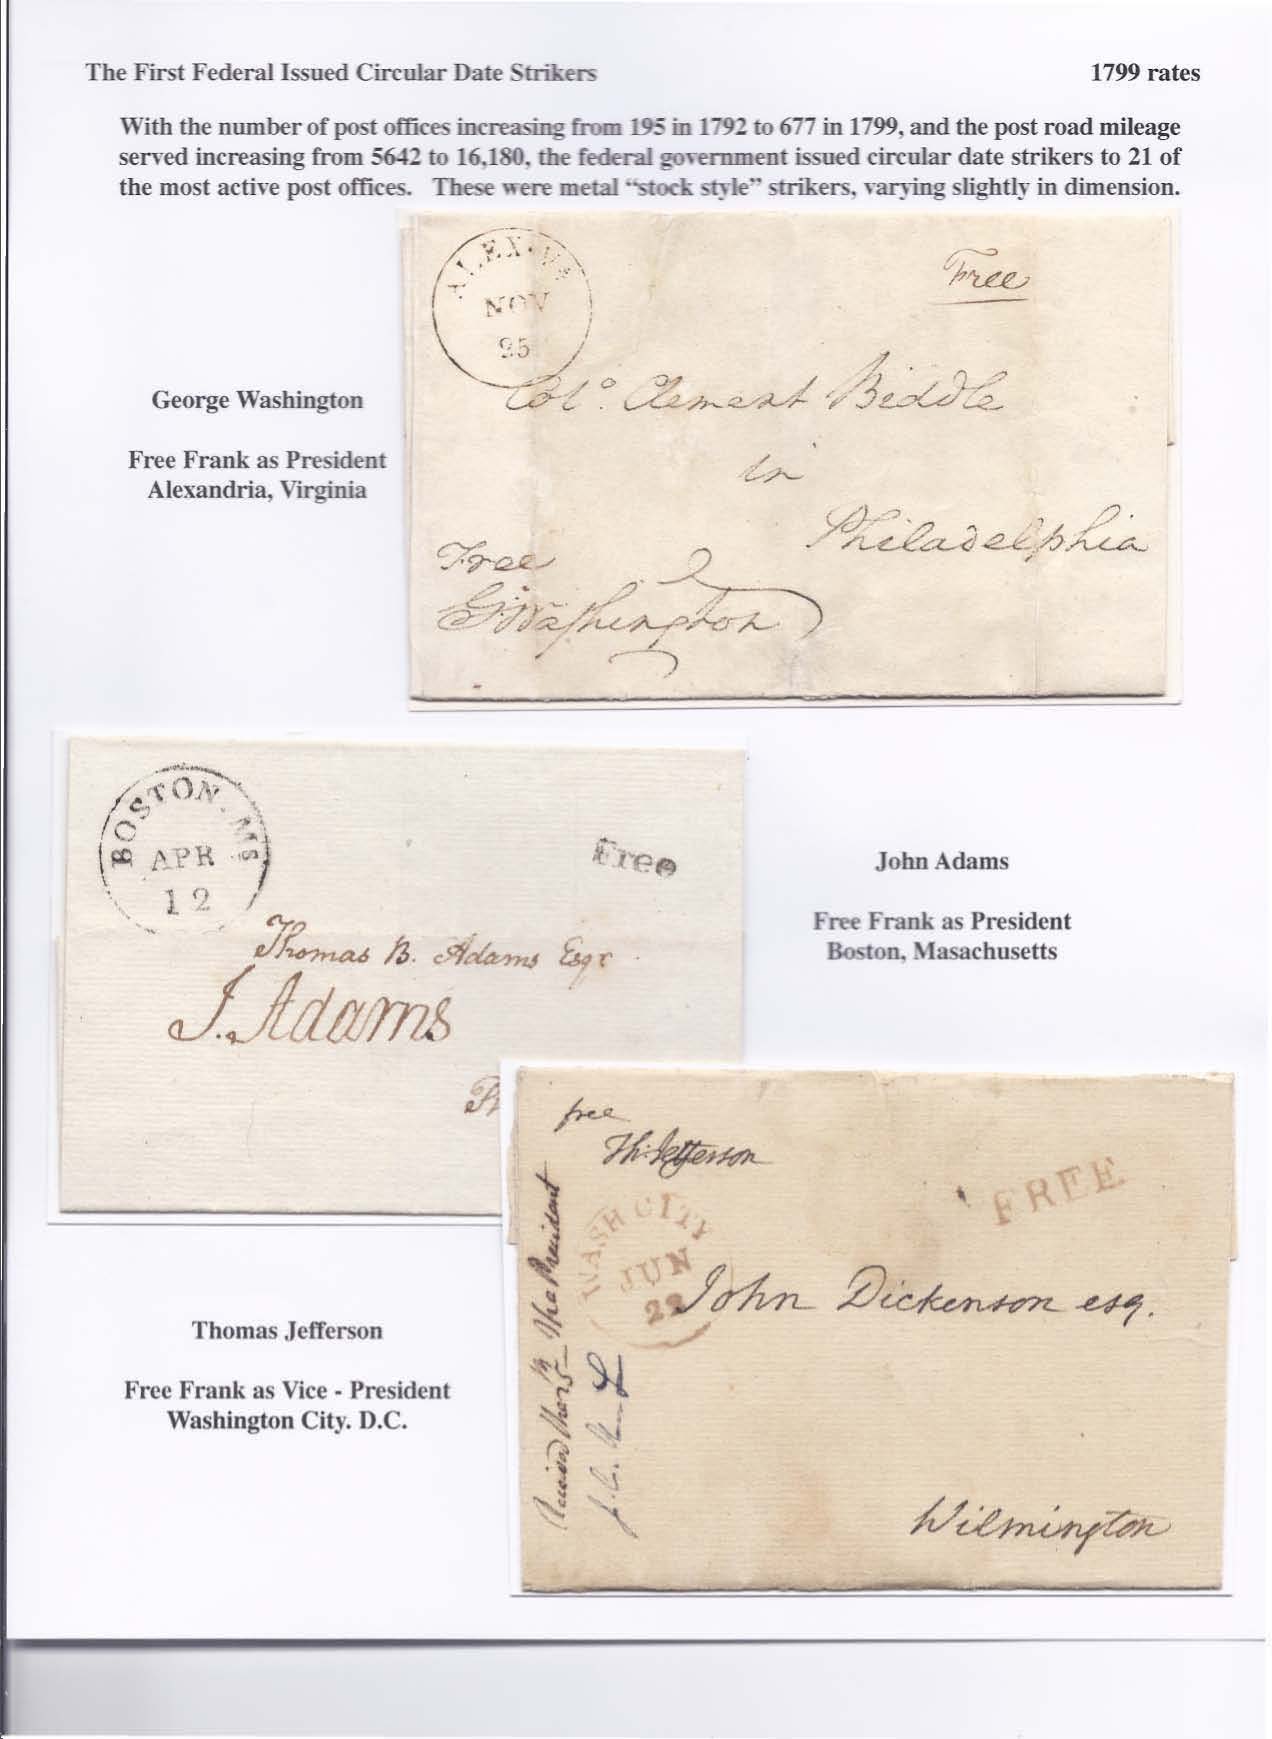 The First Federal Issued Circular Date Strikers
1799 rates
With the number of post offices increasing from 195 in 1792 to 677 in 1799, and the post road mileage
served increasing from 5642 to 16,180, the federal government issued circular date strikers to 21 of
the most active post offices. These were metal “stock style” strikers, varying slightly in dimension.
ALEX. Va
NOV
25
Free
Colo. Clement Biddle
in
Philadelphia
Free
G:Washington
George Washington
Free Frank as President
Alexandria, Virginia
BOSTON. Ms
APR
12
Free
Thomas B. Adams Esqr
J. Adams
John Adams
Free Frank as President
Boston, Masachusetts
free
Th: Jefferson
WASH CITY
JUN
FREE
John Dickenson esq.
Wilmington
The President
Thomas Jefferson
Free Frank as Vice - President
Washington City. D.C.